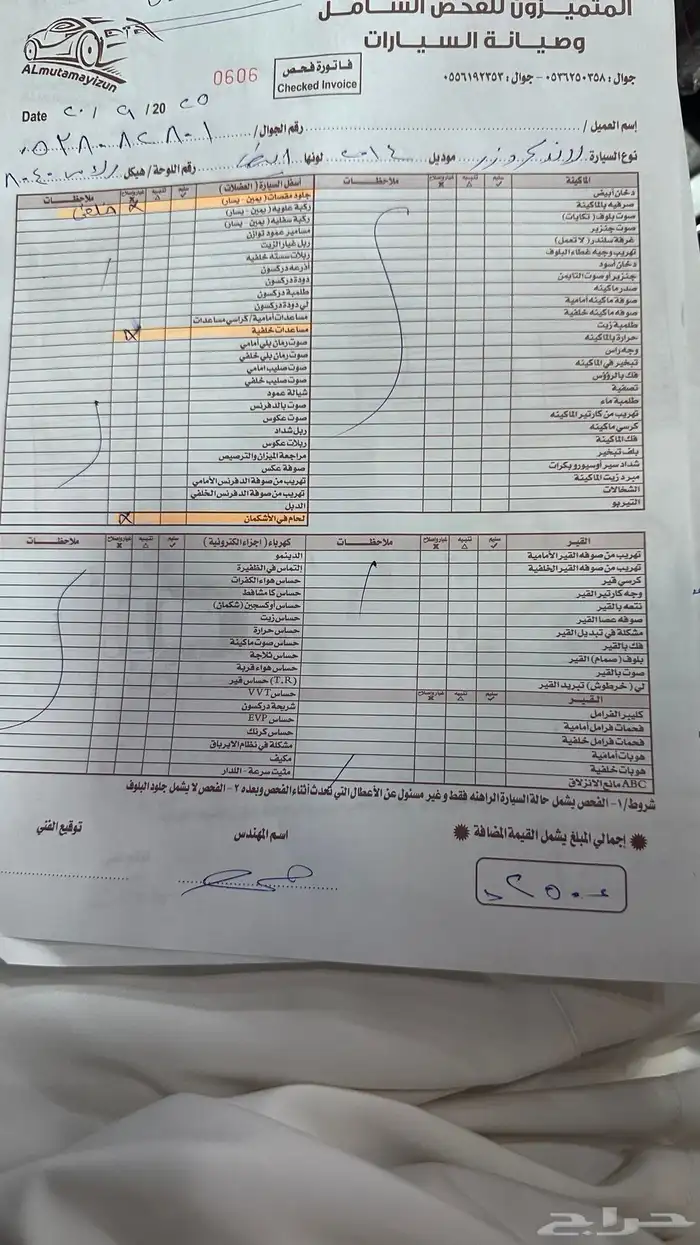 المتميزون للفحص الشامل
وصيانة السيارات
ALmutamayizun
0606
فاتورة فحص
Checked Invoice
جوال: ٠٥٣٦٢٥٠٣٥٨ - جوال: ٠٥٥٦١٩٢٣٥٣
Date ٢٠ / ٩ / 20 ٢٥
إسم العميل /
رقم الجوال /
نوع السيارة لاندكروزر موديل ٢٠١٤ لونها ابيض رقم اللوحة / هيكل
الماكينة
سليم
تنبيه
غير صالح
ملاحظات
دخان أبيض
صرفيه بالماكينة
صوت بلوف (تكايات)
صوت جنزير
غرفة سلندر (لا تعمل)
تهريب وجيه غطاء البلوف
دخان أسود
جنزير أو صوت التايمن
صدر ماكينه
صوفة ماكينه أمامية
صوفه ماكينه خلفية
طلمبة زيت
حرارة بالماكينه
وجه راس
تبخير في الماكينه
فك بالرؤوس
تصفية
طلمبة ماء
تهريب من كارتير الماكينه
كرسي ماكينه
فك الماكينة
بلف تبخير
شداد سير أوسيور وبكرات
مبرد زيت الماكينة
الشخالات
التيربو
أسفل السيارة (العضلات)
سليم
تنبيه
غير صالح
ملاحظات
جلود مقصات (يمين - يسار) خلفي
ركبة علويه (يمين - يسار)
ركبة سفليه (يمين - يسار)
مسامير عمود توازن
ربل غيار الزيت
ربلات سسته خلفيه
أذرعه دركسون
دودة دركسون
طلمبة دركسون
لي دودة دركسون
مساعدات أمامية / كراسي مساعدات
مساعدات خلفية
صوت رمان بلي أمامي
صوت رمان بلي خلفي
صوت صليب أمامي
صوت صليب خلفي
شيالة عمود
صوت بالدفرنس
صوت عكوس
ربل شداد
ربلات عكوس
مراجعة الميزان والترصيص
صوفة عكس
تهريب من صوفة الدفرنس الأمامي
تهريب من صوفة الدفرنس الخلفي
الدبل
لحام في الأشكمان
القير
سليم
تنبيه
غير صالح
ملاحظات
تهريب من صوفه القير الأمامية
تهريب من صوفه القير الخلفية
كرسي قير
وجه كارتير القير
نتعه بالقير
صوفه عصا القير
مشكلة في تبديل القير
فك بالقير
بلوف (صمام) القير
صوت بالقير
لي (خرطوش) تبريد القير
القير
سليم
تنبيه
غير صالح
ملاحظات
كليبر الفرامل
فحمات فرامل أمامية
فحمات فرامل خلفية
هوبات أمامية
هوبات خلفية
ABC مانع الانزلاق
كهرباء (اجزاء الكترونية)
سليم
تنبيه
غير صالح
ملاحظات
الدينمو
التماس في الظفيرة
حساس هواء الكفرات
حساس كامشافط
حساس أوكسجين (شكمان)
حساس زيت
حساس حرارة
حساس صوت ماكينة
حساس ثلاجة
حساس هواء قربة
(T.R) حساس قير
حساس VVT
شريحة دركسون
حساس EVP
حساس كرنك
مشكلة في نظام الايرباق
مكيف
مثبت سرعة - اللدار
شروط / ١- الفحص يشمل حالة السيارة الراهنه فقط و غير مسئول عن الأعطال التي تحدث أثناء الفحص وبعده ٢- الفحص لا يشمل جلود البلوف
إجمالي المبلغ يشمل القيمة المضافة
اسم المهندس
توقيع الفني
حراج